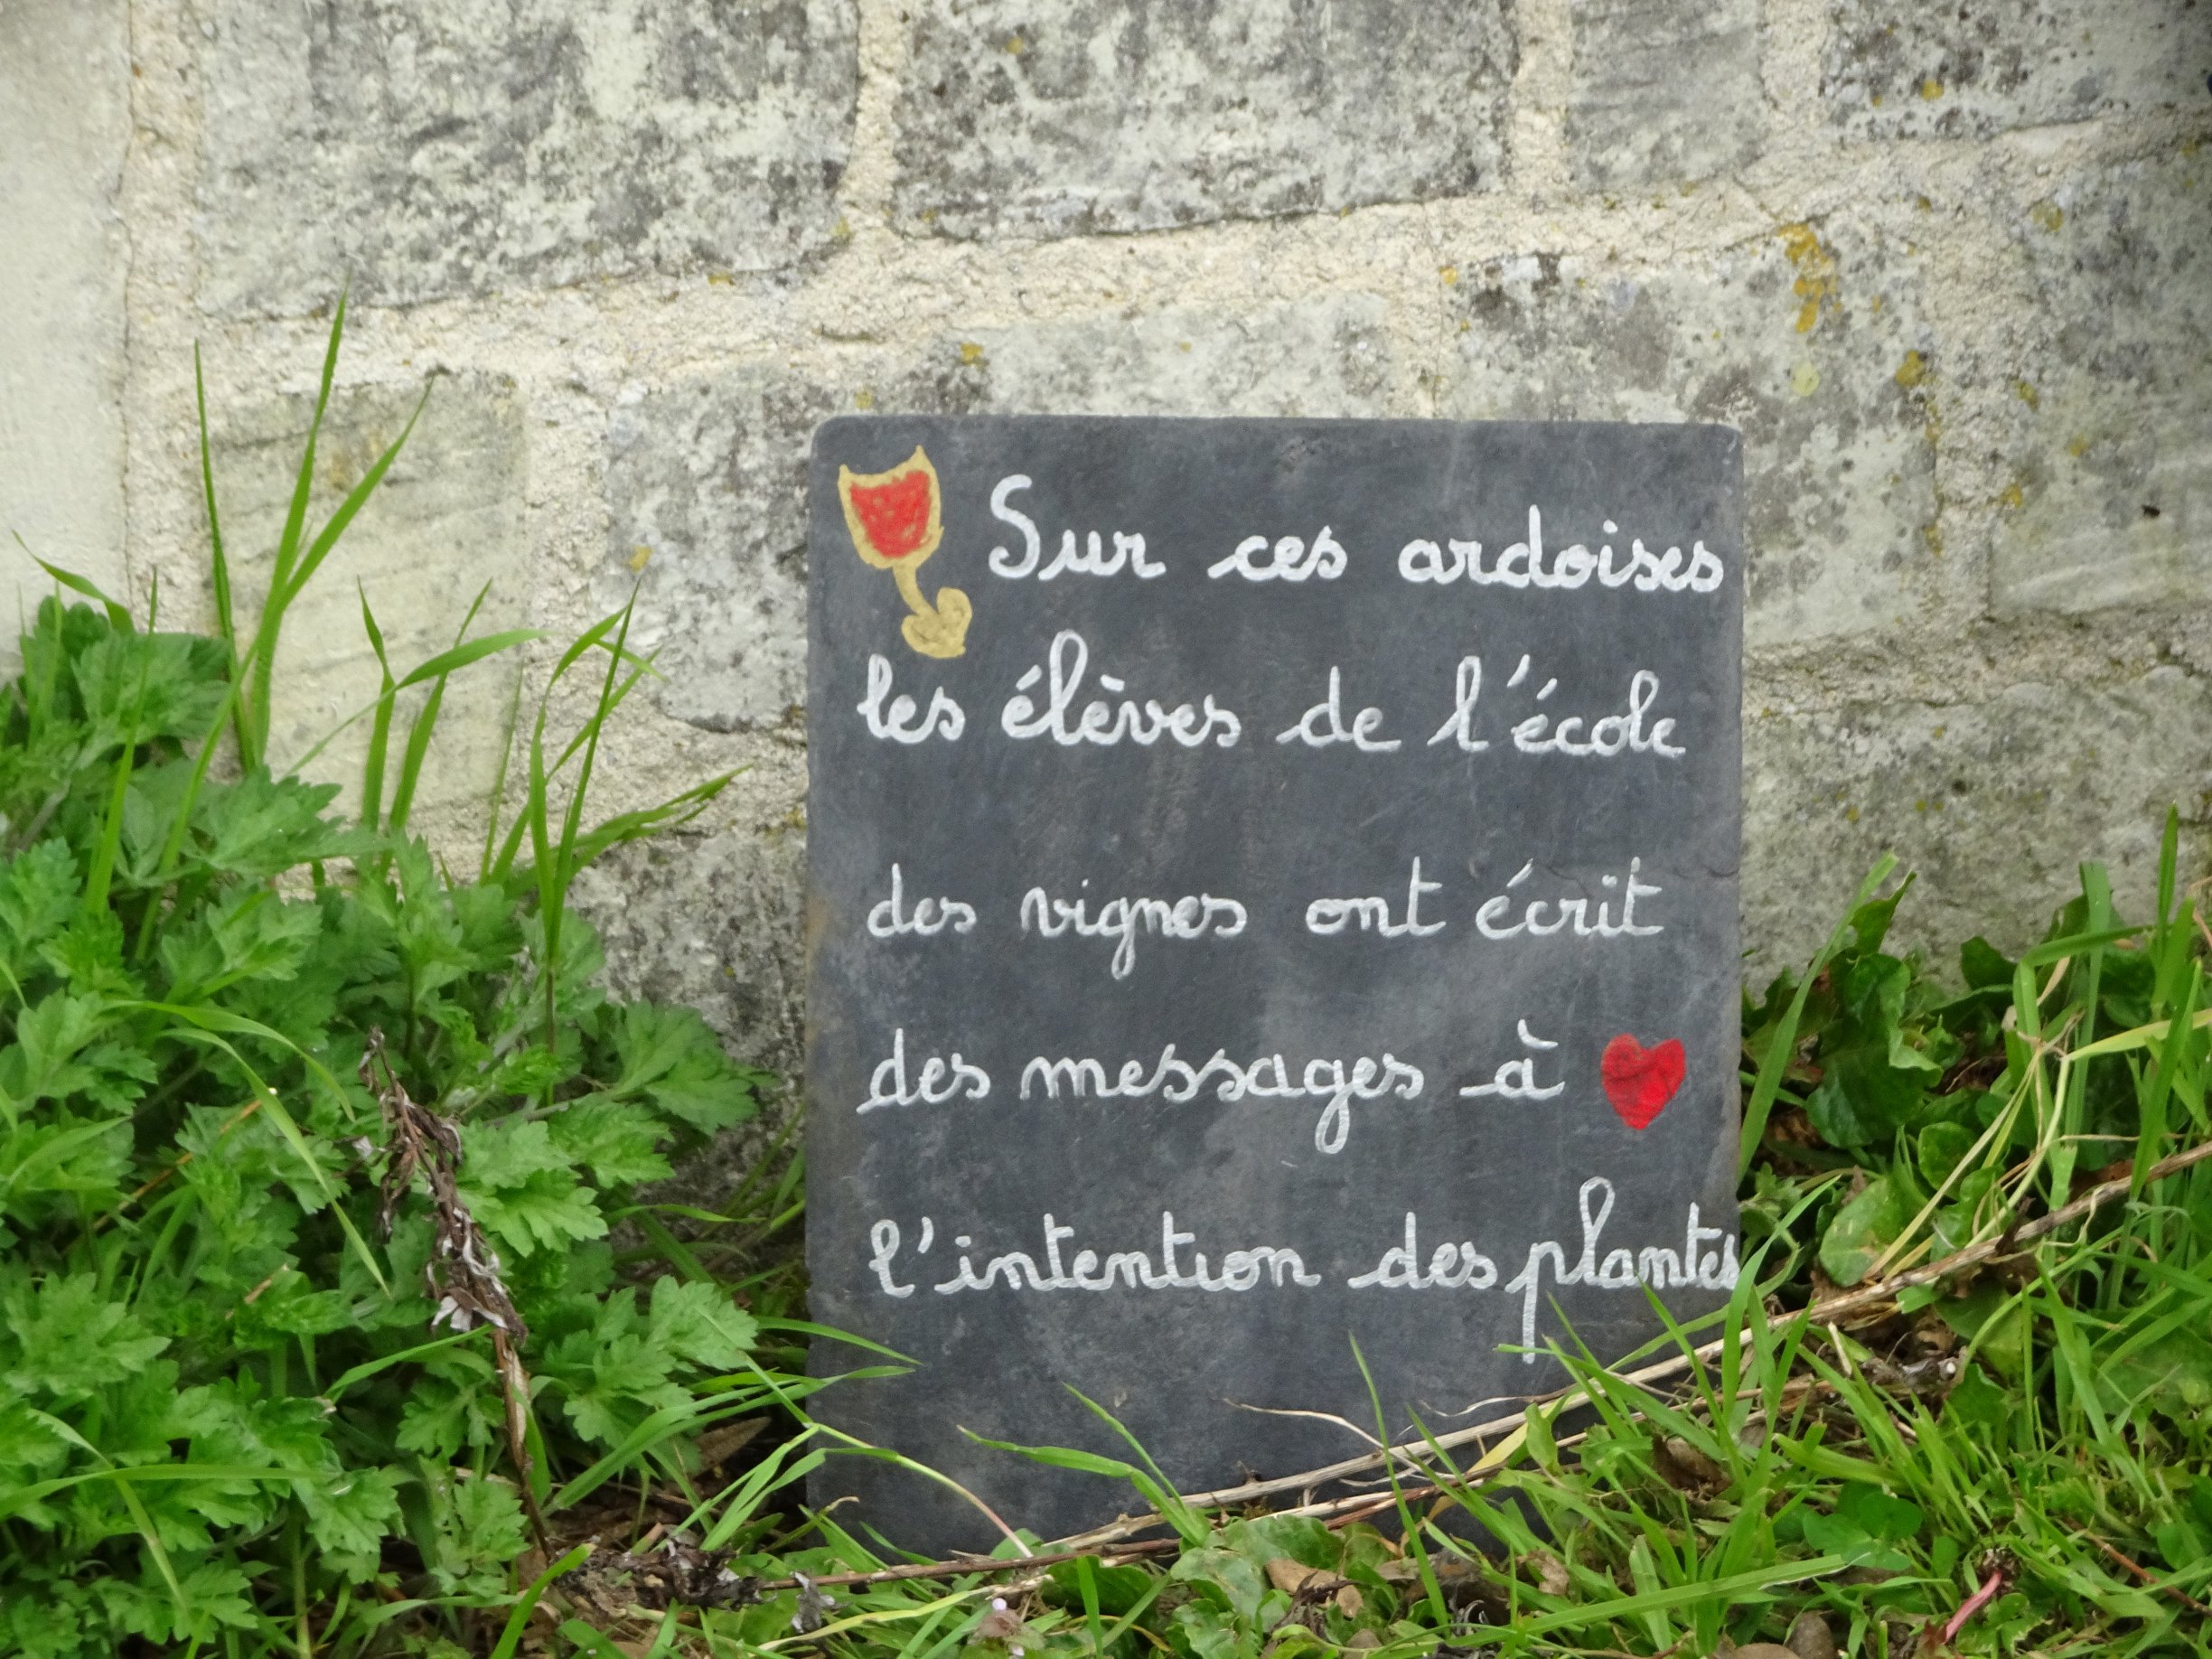 Sur ces ardoises
les élèves de l'école
des vignes ont écrit
des messages à
l'intention des plantes